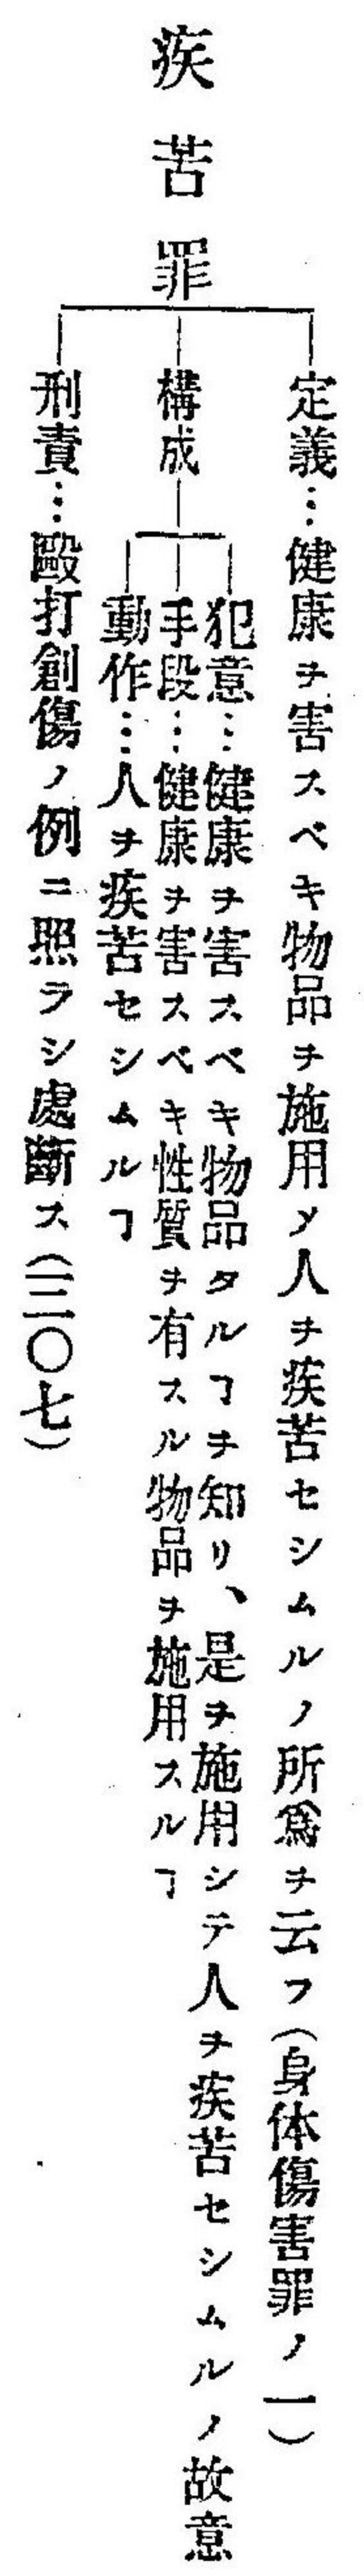 疾苦罪
定義…健康ヲ害スベキ物品ヲ施用〆人ヲ疾苦セシムルノ所爲ヲ云フ(身体傷害罪ノ一)
構成
犯意…健康ヲ害スベキ物品タルヿヲ知リ、是ヲ施用シテ人ヲ疾苦セシムルノ故意
手段…健康ヲ害スベキ性質ヲ有スル物品ヲ施用スルヿ
動作…人ヲ疾苦セシムルヿ
刑責…毆打創傷ノ例ニ照ラシ處斷ス(三〇七)